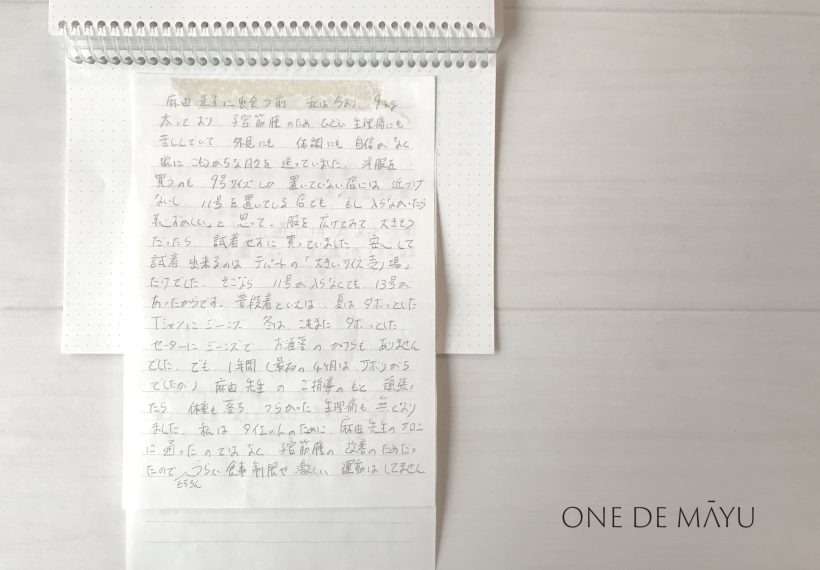 麻由先生に出会う前 私は今より 9kg
太っており 子宮筋腫のため ひどい生理痛にも
苦しんでいて 外見にも 体調にも 自信がなく
家に こもりがちな日々を 送っていました。洋服を
買うのも 9号サイズしか 置いていない店には 近づけ
ないし 11号を置いている店でも 「もし 入らなかったら
恥ずかしい」と 思って、服を 広げてみて 大きそう
だったら 試着せずに 買っていました。安心して
試着 出来るのは デパートの「大きいサイズ売り場」
だけでした。そこなら 11号が入らなくても 13号が
あったからです。普段着といえば、夏は ダボっとした
Tシャツに ジーンズ 冬は これまた ダボっとした
セーターに ジーンズで お洒落の かけらも ありません
でした。でも 1年間 (最初の4ヶ月は サボりがち
でしたが) 麻由先生の ご指導のもと 頑張っ
たら 体重も落ち つらかった 生理痛も 無くなり
ました。私は ダイエットのために 麻由先生のサロン
に通ったのではなく 子宮筋腫の 改善のためだっ
たので つらい食事制限や 激しい 運動はしてません
もちろん
ONE DE MĀYU